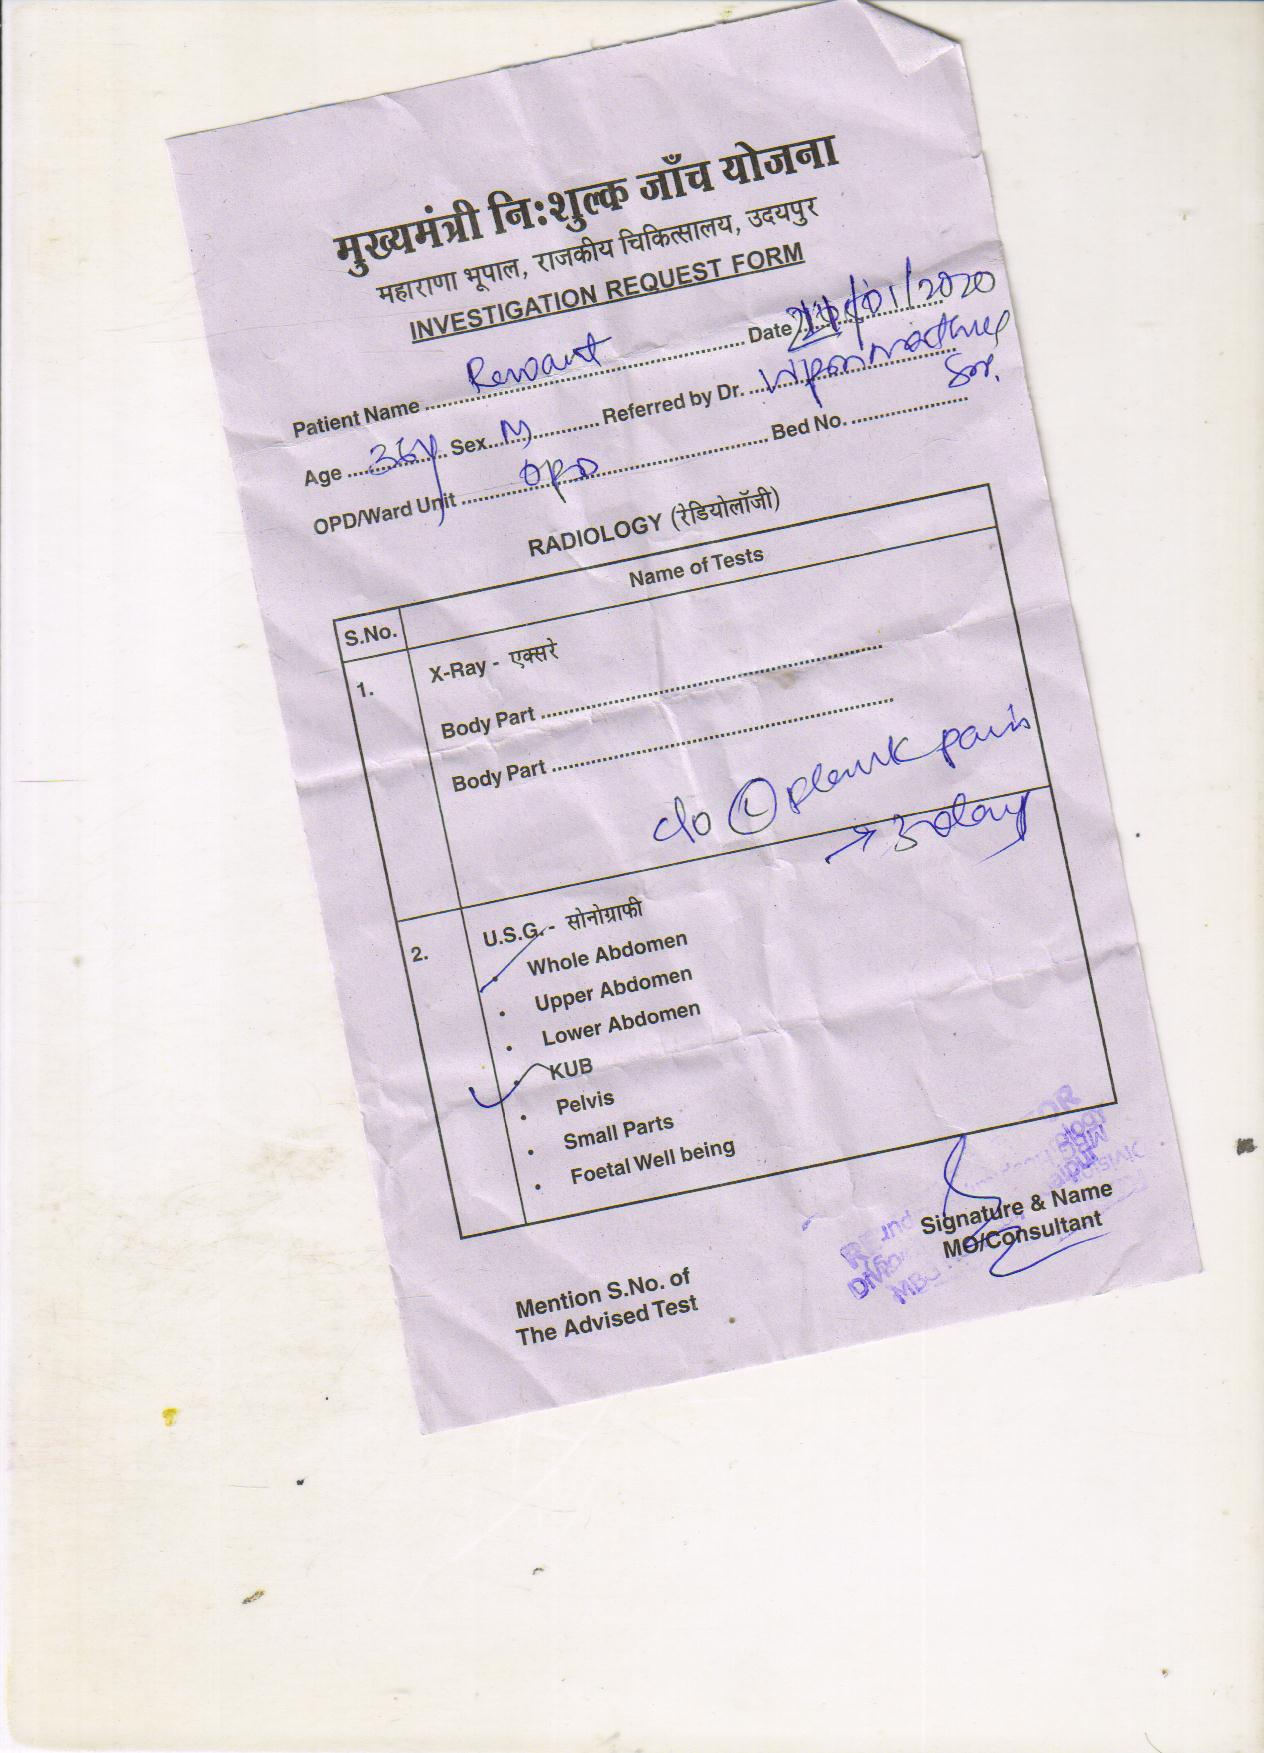 मुख्यमंत्री नि:शुल्क जाँच योजना
महाराणा भूपाल, राजकीय चिकित्सालय, उदयपुर
INVESTIGATION REQUEST FORM
Patient Name Date /01/2020
Age 36y Sex M Referred by Dr. Sir.
OPD/Ward Unit OPD Bed No.
RADIOLOGY (रेडियोलॉजी)
S.No. Name of Tests
1. X-Ray - एक्सरे
Body Part
Body Part
c/o L pain
→ 3 day
2. U.S.G. - सोनोग्राफी
• Whole Abdomen
• Upper Abdomen
• Lower Abdomen
• KUB
• Pelvis
• Small Parts
• Foetal Well being
Signature & Name
MO/Consultant
Mention S.No. of
The Advised Test